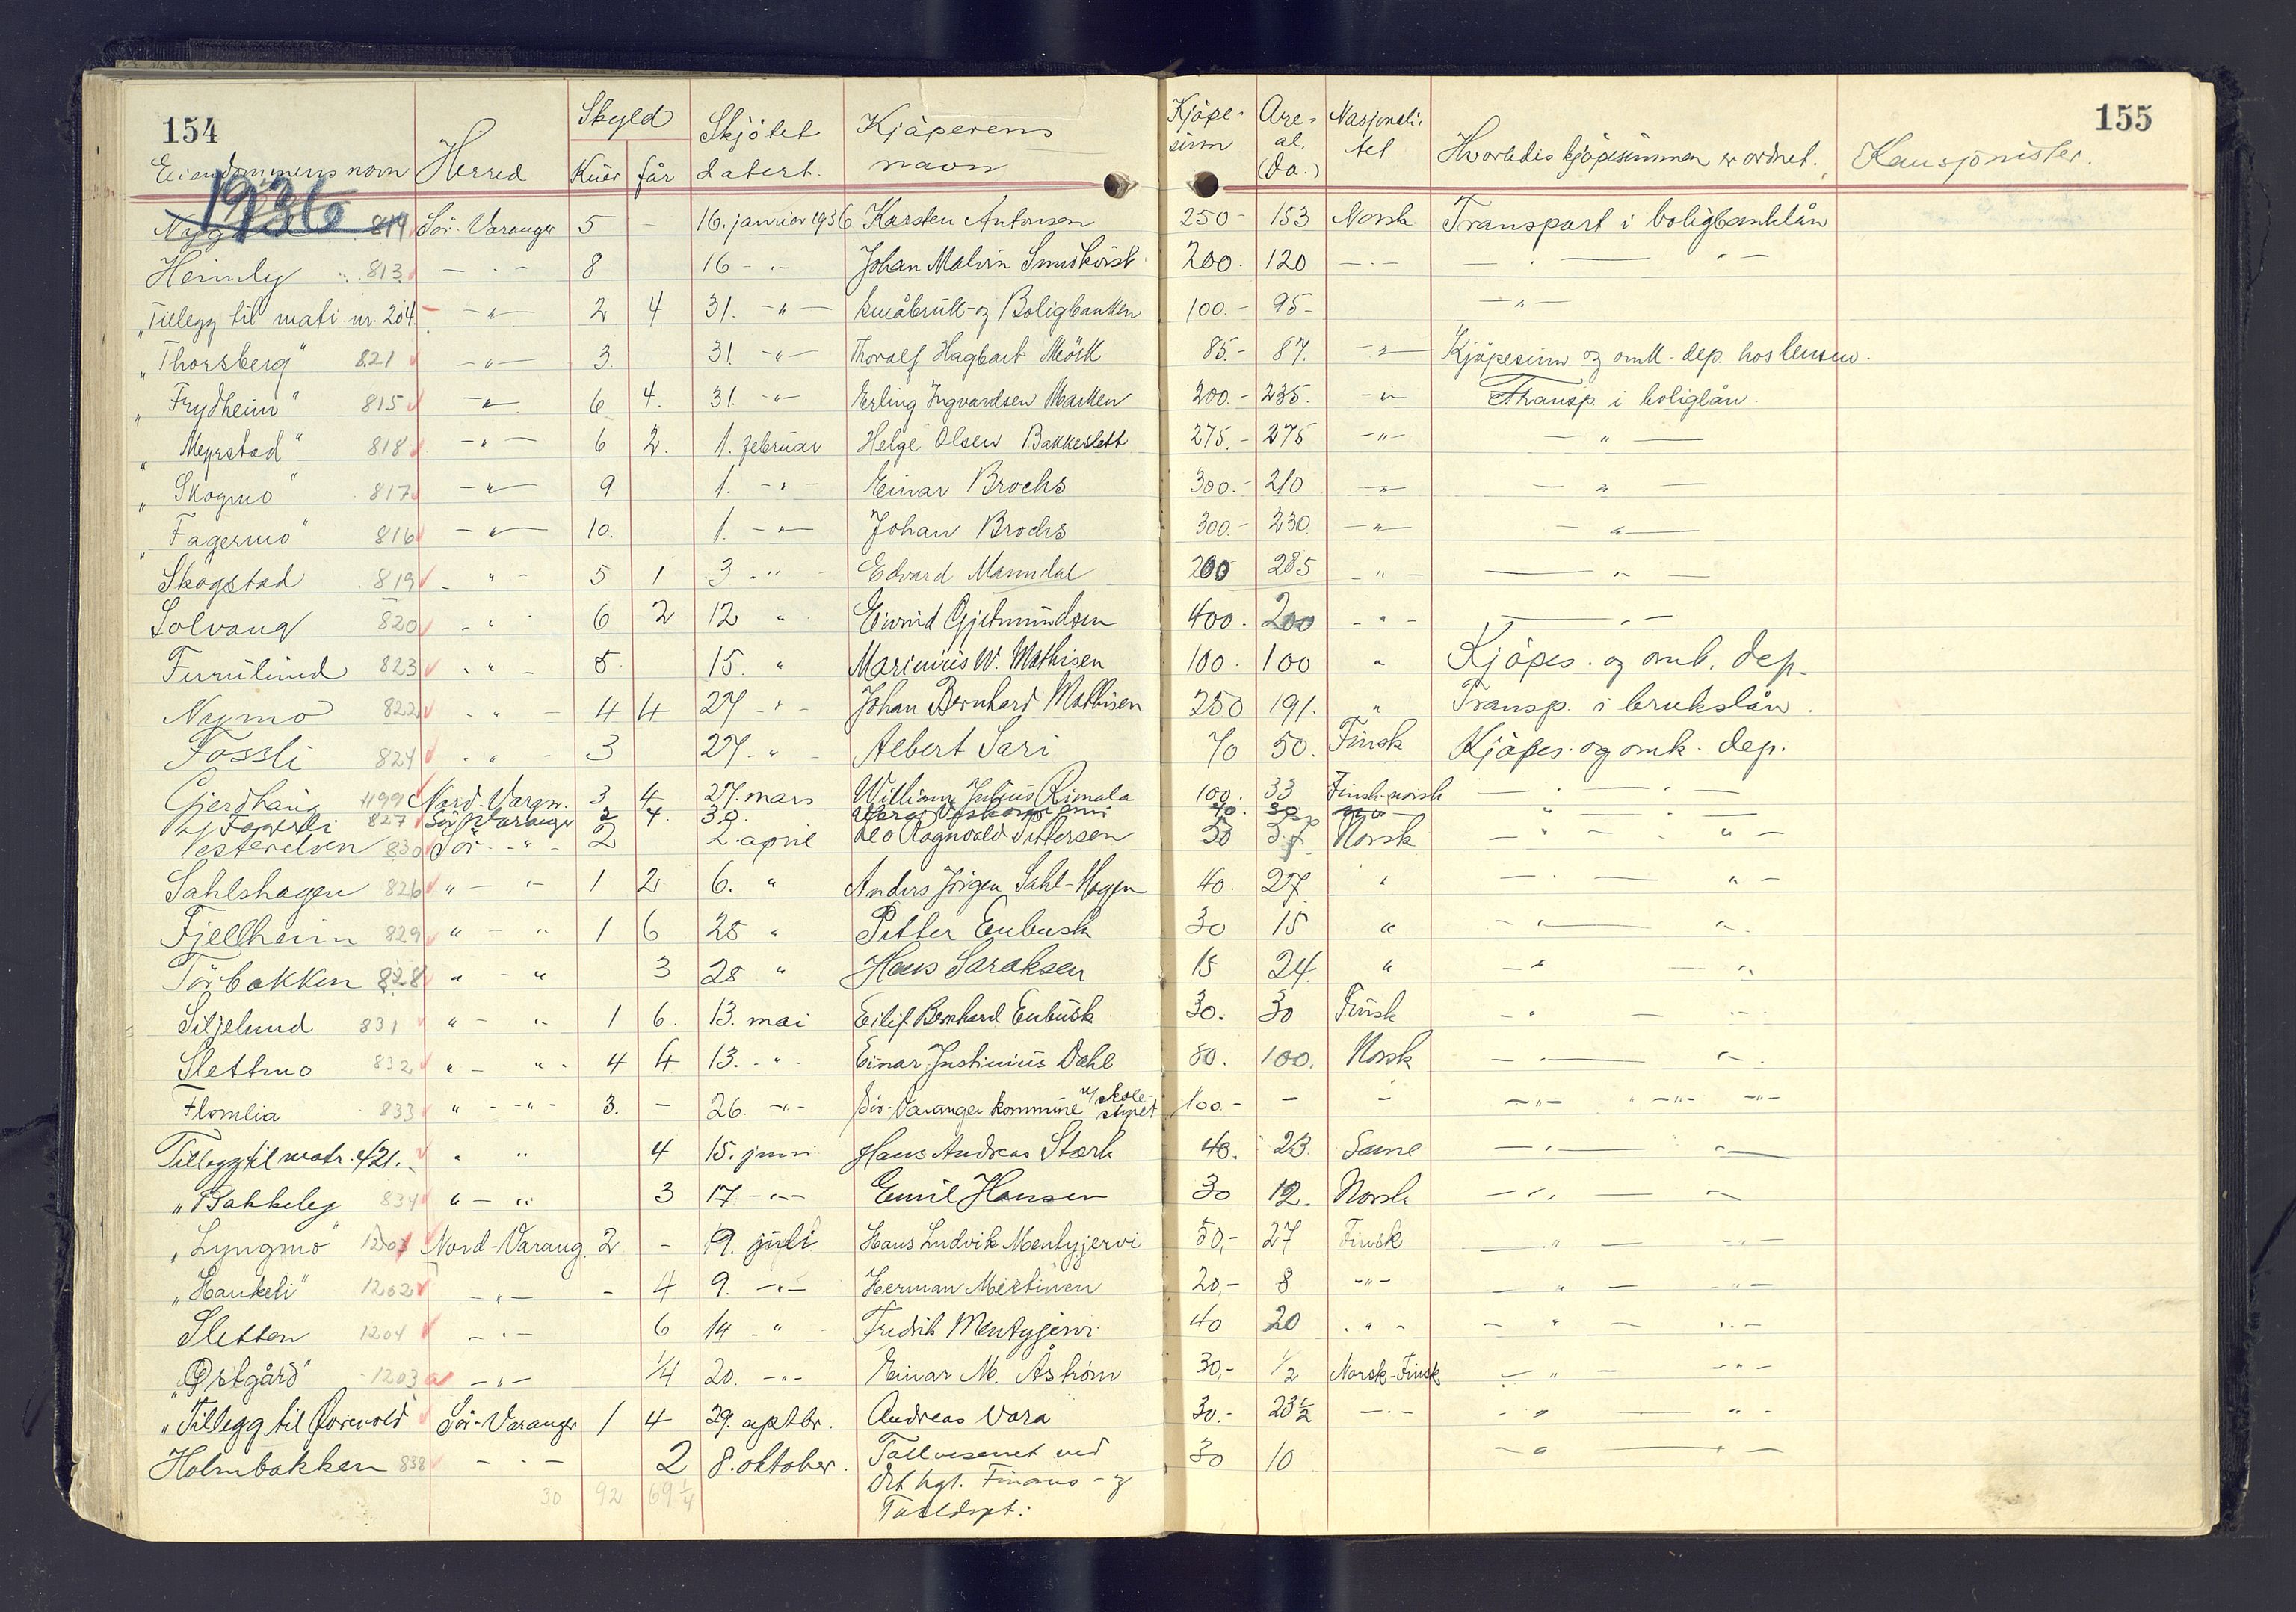 154
155
1936
Skyld Skjötet Kjøperens Kjøpe- Are- Nasjonali- Hvorledes kjøpesummen er ordnet. Kausjonister.
Eiendommens navn Herred Kuer får datert. navn sum al. (Da.) tet.
814 Sör-Varanger 5 - 16. januar 1936 Karsten Antonsen 250- 153 Norsk Transport i boligbanklån
Heimly 813 - " - 8 16 - " - Johan Malvin 200. 120 - " - - " -
"Tillegg til matr. nr. 204. - " - 2 4 31. - " - Småbruk- og Boligbanken 100.- 95- - " -
"Thorsberg" 821 - " - 3. 31 - " - Thoralf Hagbart Mörk 85.- 87. - " - Kjøpesum og omk. dep. hos lensm.
"Frydheim" 815 - " - 6 4. 31. - " - Erling Ingvardsen Marken 200.- 235. - " - Transp. i boliglån.
"Myrstad" 818 - " - 6 2. 1. februar Helge Olsen Bakkeslett 275.- 275 - " - - " -
"Skogmo" 817 - " - 9 1. - " - Einar Brochs 300.- 210 - " - - " -
"Fagermo" 816 - " - 10. 1. - " - Johan Brochs 300.- 230. - " - - " -
Skogstad 819 - " - 5 1 3 - " - Edvard Manndal 200 285 - " - - " -
Solvang 820 - " - 6 2 12 " Eivind Gjetmundsen 400. 200 - " - - " -
Furulund 823 - " - 5. 15. " Marinius W. Mathisen 100. 100 " Kjøpes. og omk. dep.
Nymo 822 - " - 4 4 27 - " - Johan Bernhard Mathisen 250 191. " Transp. i brukslån.
Fossli 824 - " - 3 27 - " - Albert Sari 70 50. Finsk Kjøpes. og omk. dep.
Gjerdhaug 1199 Nord-Vargr. 3 4 27. mars William Julius Rimala 100. 33 Finsk-norsk - " -
Fagerli 827 Sör-Varanger 2 4. 30. 40. 30 - " -
Vesterelven 830 Sör - " - 2 2. april Leo Ragnvald Pettersen 50 Norsk - " -
Sahlshagen 826 " - " - 1 2 6. " Anders Jörgen Sahl-Hagen 40. 27 " - " -
Fjellheim 829 " - " 1 6 28 " Petter Eubusk 30 15 " - " -
Törbakken 828 " - " 3 28 " Hans Saraksen 15 24. " - " -
Siljelund 831 " - " 1 6. 13. mai Eilif Bernhard Eubusk 30. 30 Finsk - " -
Slettmo 832 " - " - 4 4 13. - " - Einar Justinius Dahl 80. 100. Norsk - " -
Flomlia 833 " - " - 3. - 26. - " - Sör-Varanger kommune v/ skole-styret 100.- - - - " -
Tillegg til matr. 4/21. " " 4 15. juni Hans Andreas Stærk 40. 23. Same - " -
"Bakkely 834 " - " 3 17 - " - Emil Hansen 30 12. Norsk - " -
"Lyngmo" 1201 Nord-Varang. 2 - 9. juli Hans Ludvik Mentyjervi 50,- 27 Finsk - " -
"Haukeli" 1202 - " - - 4 9. - " - Herman Mertinen 20,- 8 - " - - " -
Sletten 1204 - " - 6 14 - " - Fredrik Mentyjervi 40 20 - " - - " -
"Østgård" 1203 - " - 1/4 20. - " - Einar M. Åström 30,- 1/2 Norsk-Finsk - " -
"Tillegg til Sör-Varanger 1 4 29. septbr. Andreas Vara 30.- 23 1/2 - " - - " -
Holmbakken 838 - " - 2 8. oktober. Tollvesenet ved 30 10 - " -
30 92 69 1/4 Det kgl. Finans- og
Tolldept.